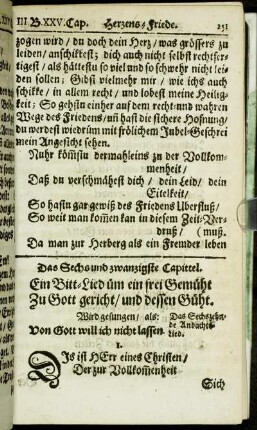 III B. XXV. Cap. Herzens-Friede. 251
zogen wird / du doch dein Herz / was grössers zu
leiden / anschikkest; dich auch nicht selbst rechtfer-
tigest / als hättestu so viel und so schwehr nicht lei-
den sollen; Gibst vielmehr mir / wie ichs auch
schikke / in allem recht / und lobest meine Heilig-
keit; So gehstu einher auf dem recht-und wahren
Wege des Friedens / uñ hast die sichere Hofnung /
du werdest wiedrüm mit frölichem Jubel-Geschrei
mein Angesicht sehen.
Nuhr köm̃stu dermahleins zu der Vollkom-
menheit /
Daß du verschmähest dich / dein Leid / dein
Eitelkeit /
So hastu gar gewiß des Friedens Uberfluß /
So weit man kom̃en kan in diesem Zeit-Ver-
druß / (muß.
Da man zur Herberg als ein Fremder leben
Das Sechs und zwanzigste Capittel.
Ein Bitt-Lied üm ein frei Gemüht
Zu Gott gericht / und dessen Güht.
Wird gesungen / als: Das Sechszehn-
Von Gott will ich nicht lassen de Andachts-
Lied.
1.
Dis ist HErr eines Christen /
Der zur Vollkom̃enheit
Sich